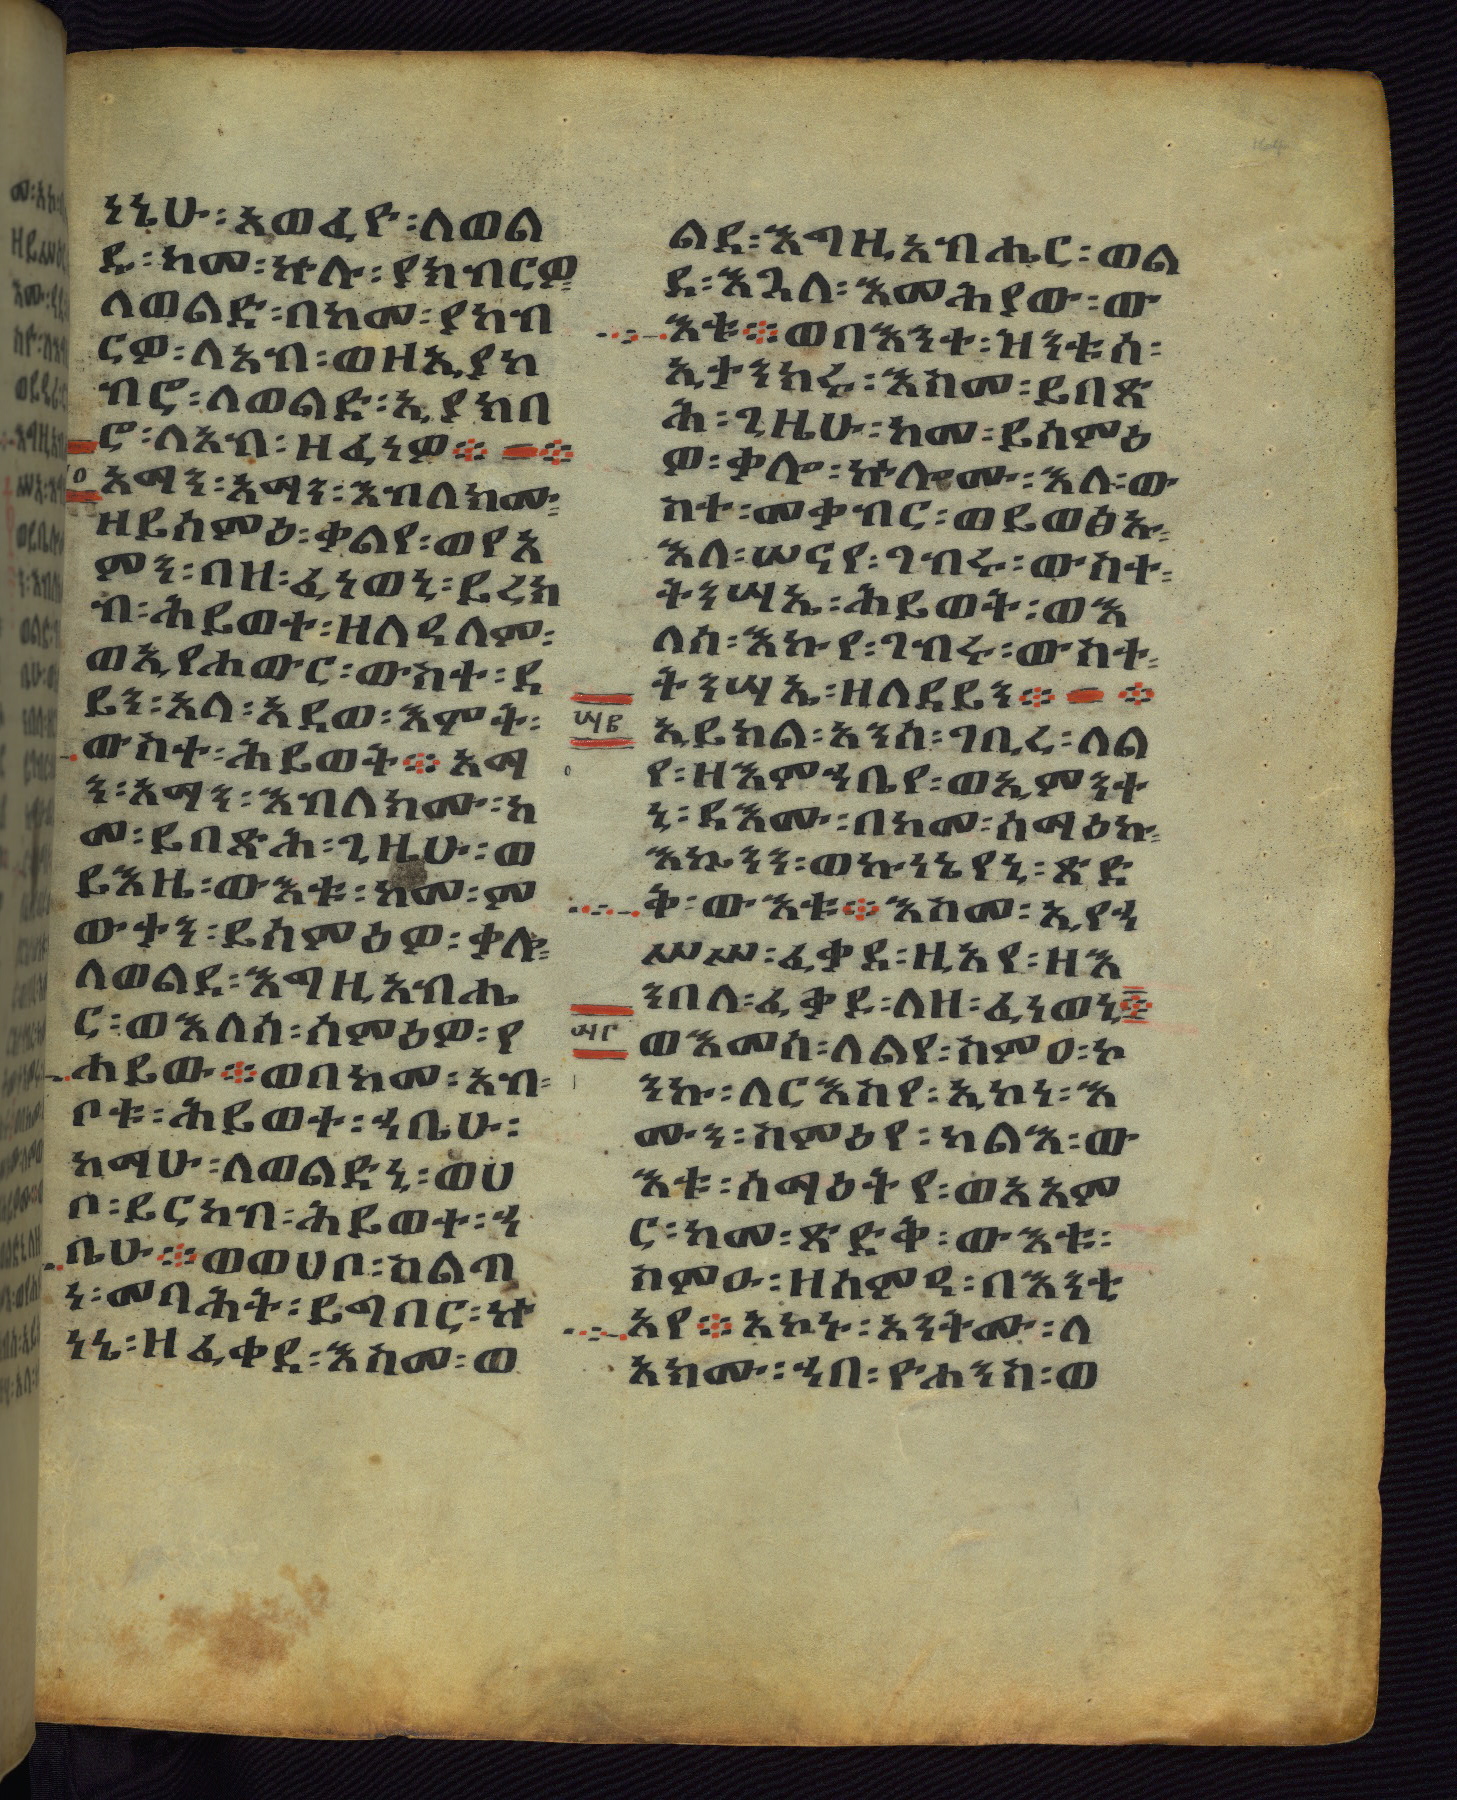 ነኒሁ፡ አወፈዮ፡ ለወል
ዱ፡ ከመ፡ ኵሉ፡ ያክብርዎ፡
ለወልድ፡ በከመ፡ ያከብ
ርዎ፡ ለአብ፡ ወዘኢያከ
ብሮ፡ ለወልድ፡ ኢያክበ
ሮ፡ ለአብ፡ ዘፈነዎ፨
አማን፡ አማን፡ እብለክሙ፡
ዘይሰምዕ፡ ቃልየ፡ ወየአ
ምን፡ በዘ፡ ፈነወኒ፡ ይረክ
ብ፡ ሕይወተ፡ ዘለዓለም፡
ወኢየሐውር፡ ውስተ፡ ደ
ይን፡ አላ፡ አደወ፡ እምት፡
ውስተ፡ ሕይወት፨ አማ
ን፡ አማን፡ እብለክሙ፡ ከ
መ፡ ይበጽሕ፡ ጊዜሁ፡ ወ
ይእዜ፡ ውእቱ፡ ከመ፡ ም
ውታን፡ ይሰምዕዎ፡ ቃሎ፡
ለወልደ፡ እግዚአብሔ
ር፡ ወእለሰ፡ ሰምዕዎ፡ የ
ሐይው፨ ወበከመ፡ አብ፡
ቦቱ፡ ሕይወተ፡ ኀቤሁ፡
ከማሁ፡ ለወልድኒ፡ ወሀ
ቦ፡ ይርከብ፡ ሕይወተ፡ ኀ
ቤሁ፨ ወወሀቦ፡ ሥልጣ
ነ፡ መባሕት፡ ይግበር፡ ኵ
ነኔ፡ ዘፈቀደ፡ እስመ፡ ወ
ልደ፡ እግዚአብሔር፡ ወል
ደ፡ እጓለ፡ እመሕያው፡ ው
እቱ፨ ወበእንተ፡ ዝንቱሰ፡
ኢታንክሩ፡ እስመ፡ ይበጽ
ሕ፡ ጊዜሁ፡ ከመ፡ ይሰምዕ
ዎ፡ ቃሎ፡ ኵሎሙ፡ እለ፡ ው
ስተ፡ መቃብር፡ ወይወፅኡ፡
እለ፡ ሠናየ፡ ገብሩ፡ ውስተ፡
ትንሣኤ፡ ሕይወት፡ ወእ
ለሰ፡ እኩየ፡ ገብሩ፡ ውስተ፡
ትንሣኤ፡ ዘለደይን፨
ኢይክል፡ አንሰ፡ ገቢረ፡ ለል
የ፡ ዘእምኀቤየ፡ ወኢምንተ
ኒ፡ ዳእሙ፡ በከመ፡ ሰማዕኩ፡
እኴንን፡ ወኩነኔየኒ፡ ጽድ
ቅ፡ ውእቱ፨ እስመ፡ ኢየኀ
ሥሥ፡ ፈቃደ፡ ዚአየ፡ ዘእ
ንበለ፡ ፈቃደ፡ ለዘ፡ ፈነወኒ፨
ወእመሰ፡ ለልየ፡ ስምዐ፡ ኮ
ንኩ፡ ለርእስየ፡ ኢኮነ፡ እ
ሙን፡ ስምዕየ፡ ካልእ፡ ው
እቱ፡ ሰማዕትየ፡ ወአአም
ር፡ ከመ፡ ጽድቅ፡ ውእቱ፡
ስምዑ፡ ዘሰምዓ፡ በእንቲ
አየ፨ አኮኑ፡ አንትሙ፡ ለ
አክሙ፡ ኀበ፡ ዮሐንስ፡ ወ